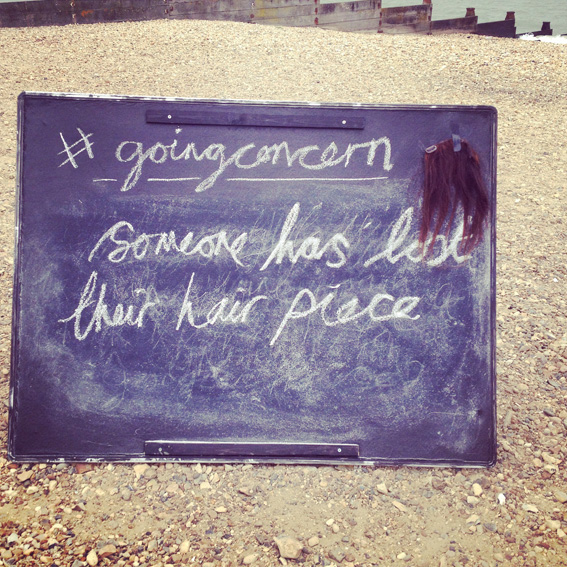 #goingconcern
Someone has lost
their hair piece